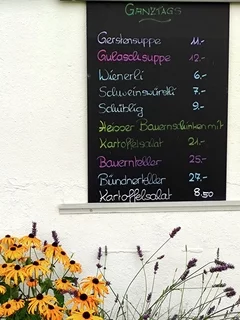 GANZTAGS
Gerstensuppe 11.-
Gulaschsuppe 12.-
Wienerli 6.-
Schweinswürstli 7.-
Schüblig 9.-
Heisser Bauernschinken mit
Kartoffelsalat 21.-
Bauernteller 25.-
Bündnerteller 27.-
Kartoffelsalat 8.50